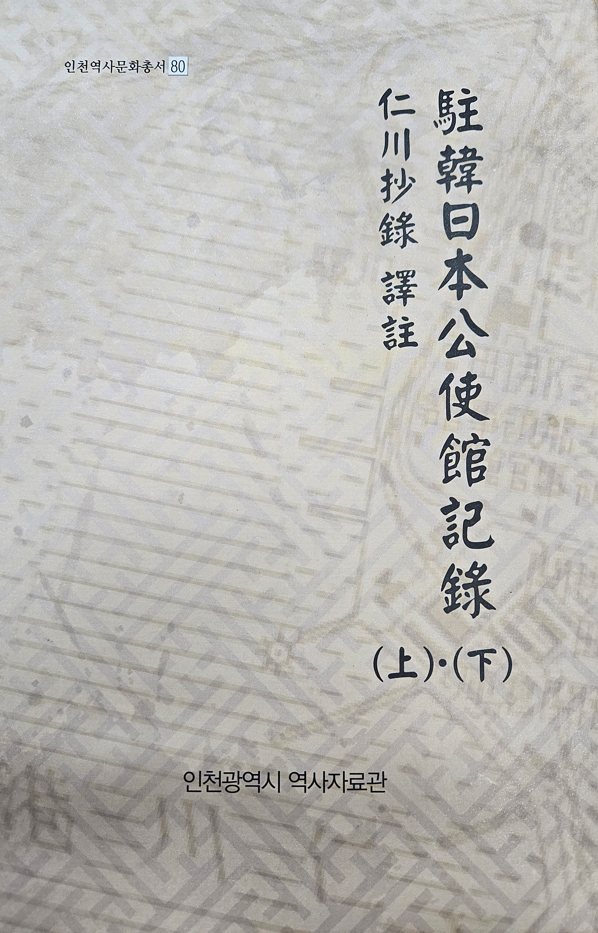 인천역사문화총서 80
駐韓日本公使館記錄
仁川抄錄 譯註
(上)·(下)
인천광역시 역사자료관